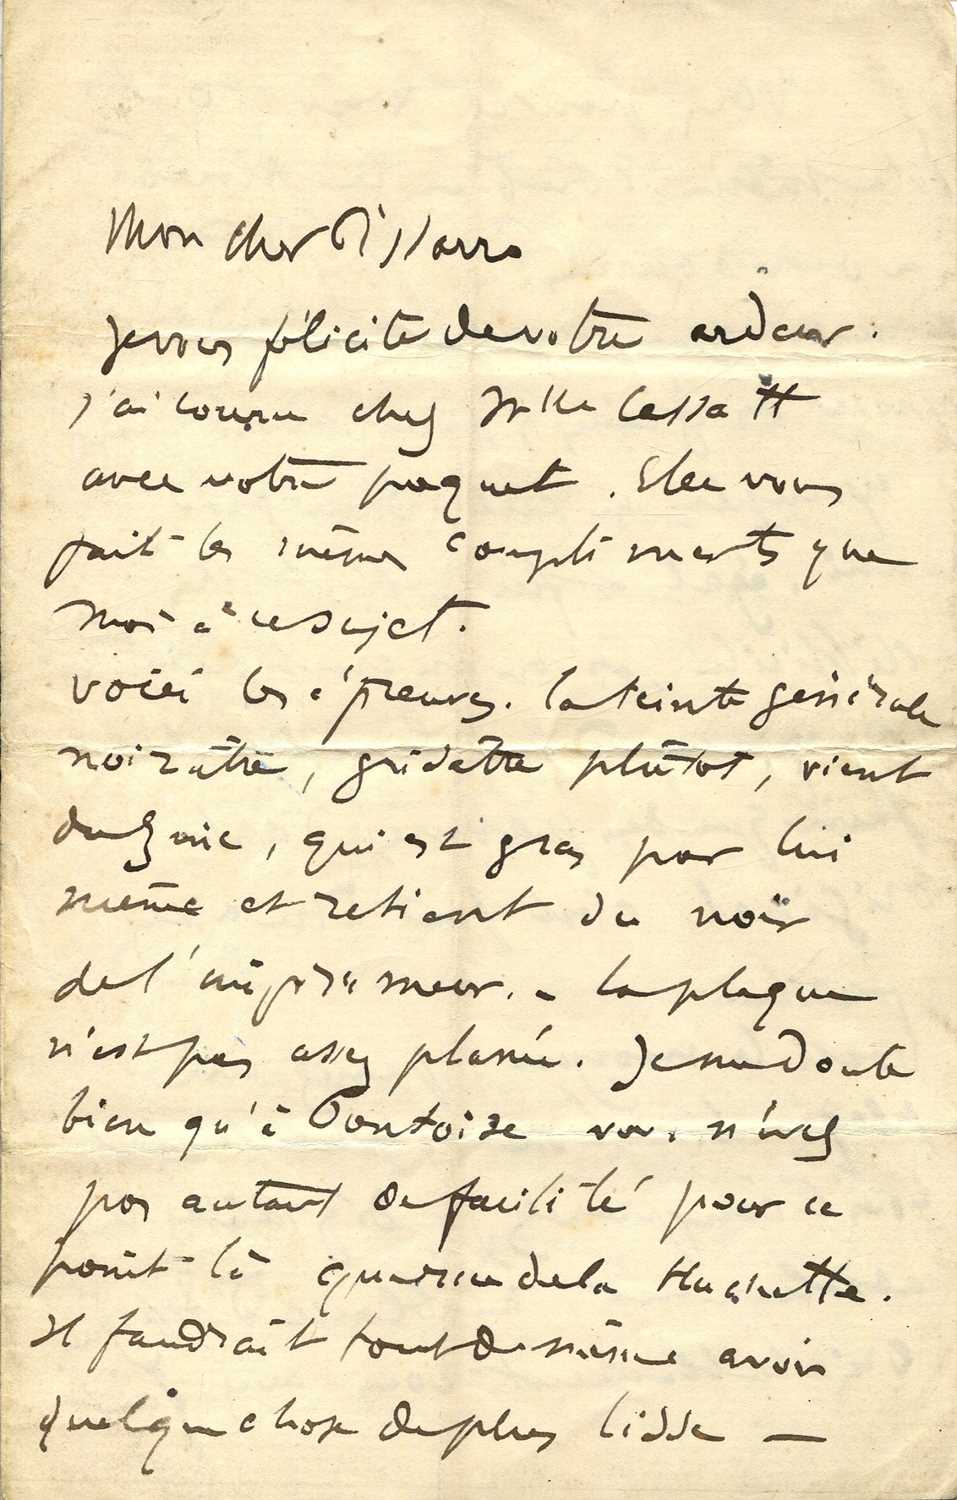 Mon cher Pissarro
Je vous félicite de votre ardeur.
j'ai couru chez Mlle Cassatt
avec votre paquet. Elle vous
fait les mêmes compliments que
moi à ce sujet.
Voici les épreuves. la teinte générale
noirâtre, grisâtre plutôt, vient
du zinc, qui est gras par lui
même et retient du noir
de l'imprimeur. - la plaque
n'est pas assez planée. Je me doute
bien qu'à Pontoise vous n'avez
pas autant de facilité pour ce
point là que rue de la Huchette.
Il faudrait tout de même avoir
quelque chose de plus lisse —